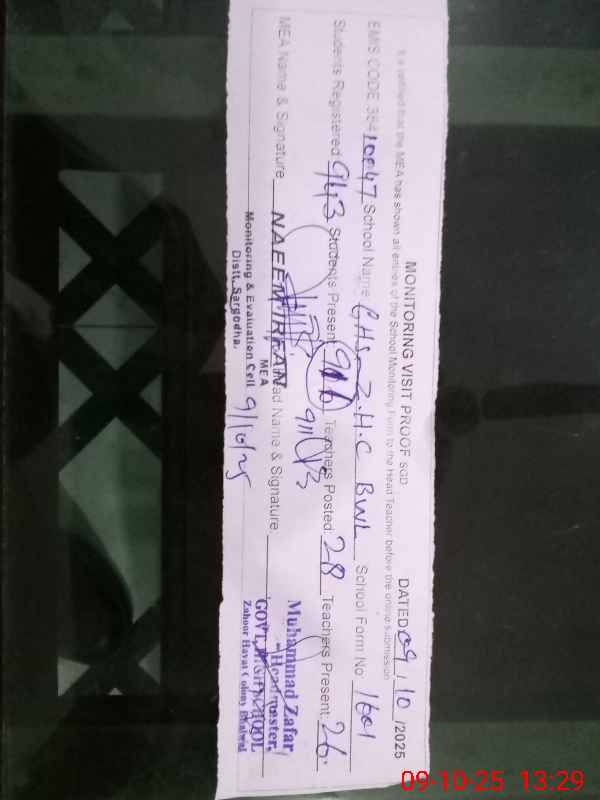 MONITORING VISIT PROOF SGD DATED 09/10/2025
It is verified that the MEA has shown all entries of the School Monitoring Form to the Head Teacher before the online submission
EMIS CODE 38410047 School Name GHS Z.H.C BWL School Form No 1601
Students Registered: 943 Students Present Teachers Posted: 28 Teachers Present: 26
MEA Name & Signature NAEEM IRFAN Head Name & Signature:
MEA
Monitoring & Evaluation Cell
Distt. Sargodha.
9/10/25
Muhammad Zafar
Headmaster,
GOVT. HIGH SCHOOL
Zahoor Hayat Colony Bhalwal
09-10-25 13:29